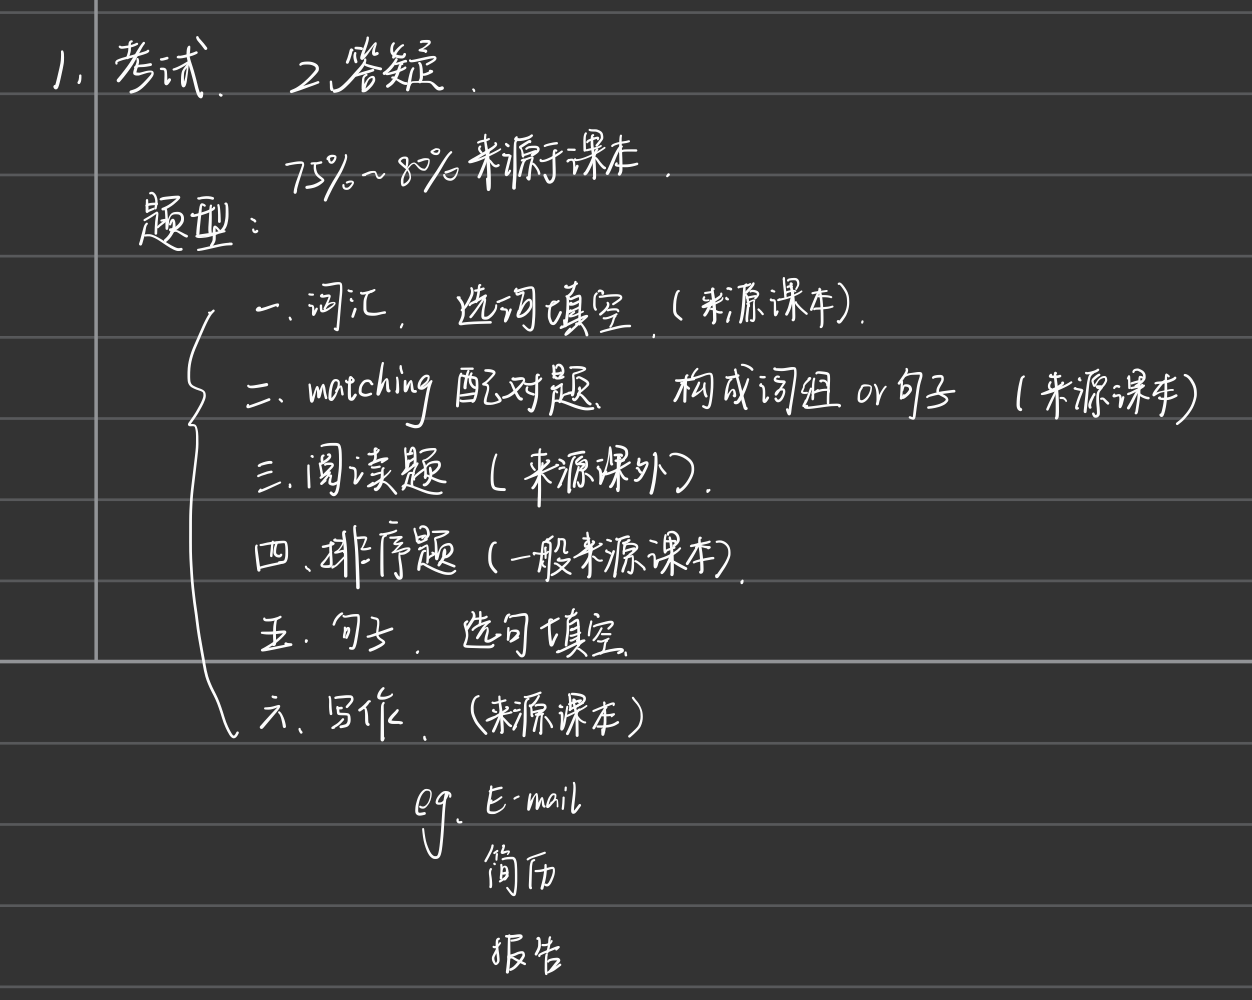 1. 考试. 2.答疑.
75%~80%来源于课本.
题型:
一.词汇. 选词填空.(来源课本).
二、matching 配对题、 构成词组 or 句子 (来源课本)
三.阅读题 (来源课外).
四、排序题(一般来源课本).
五.句子. 选句填空.
六、写作. (来源课本)
eg. E-mail
简历
报告